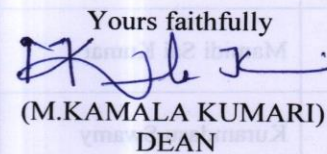 Yours faithfully
(M.KAMALA KUMARI)
DEAN